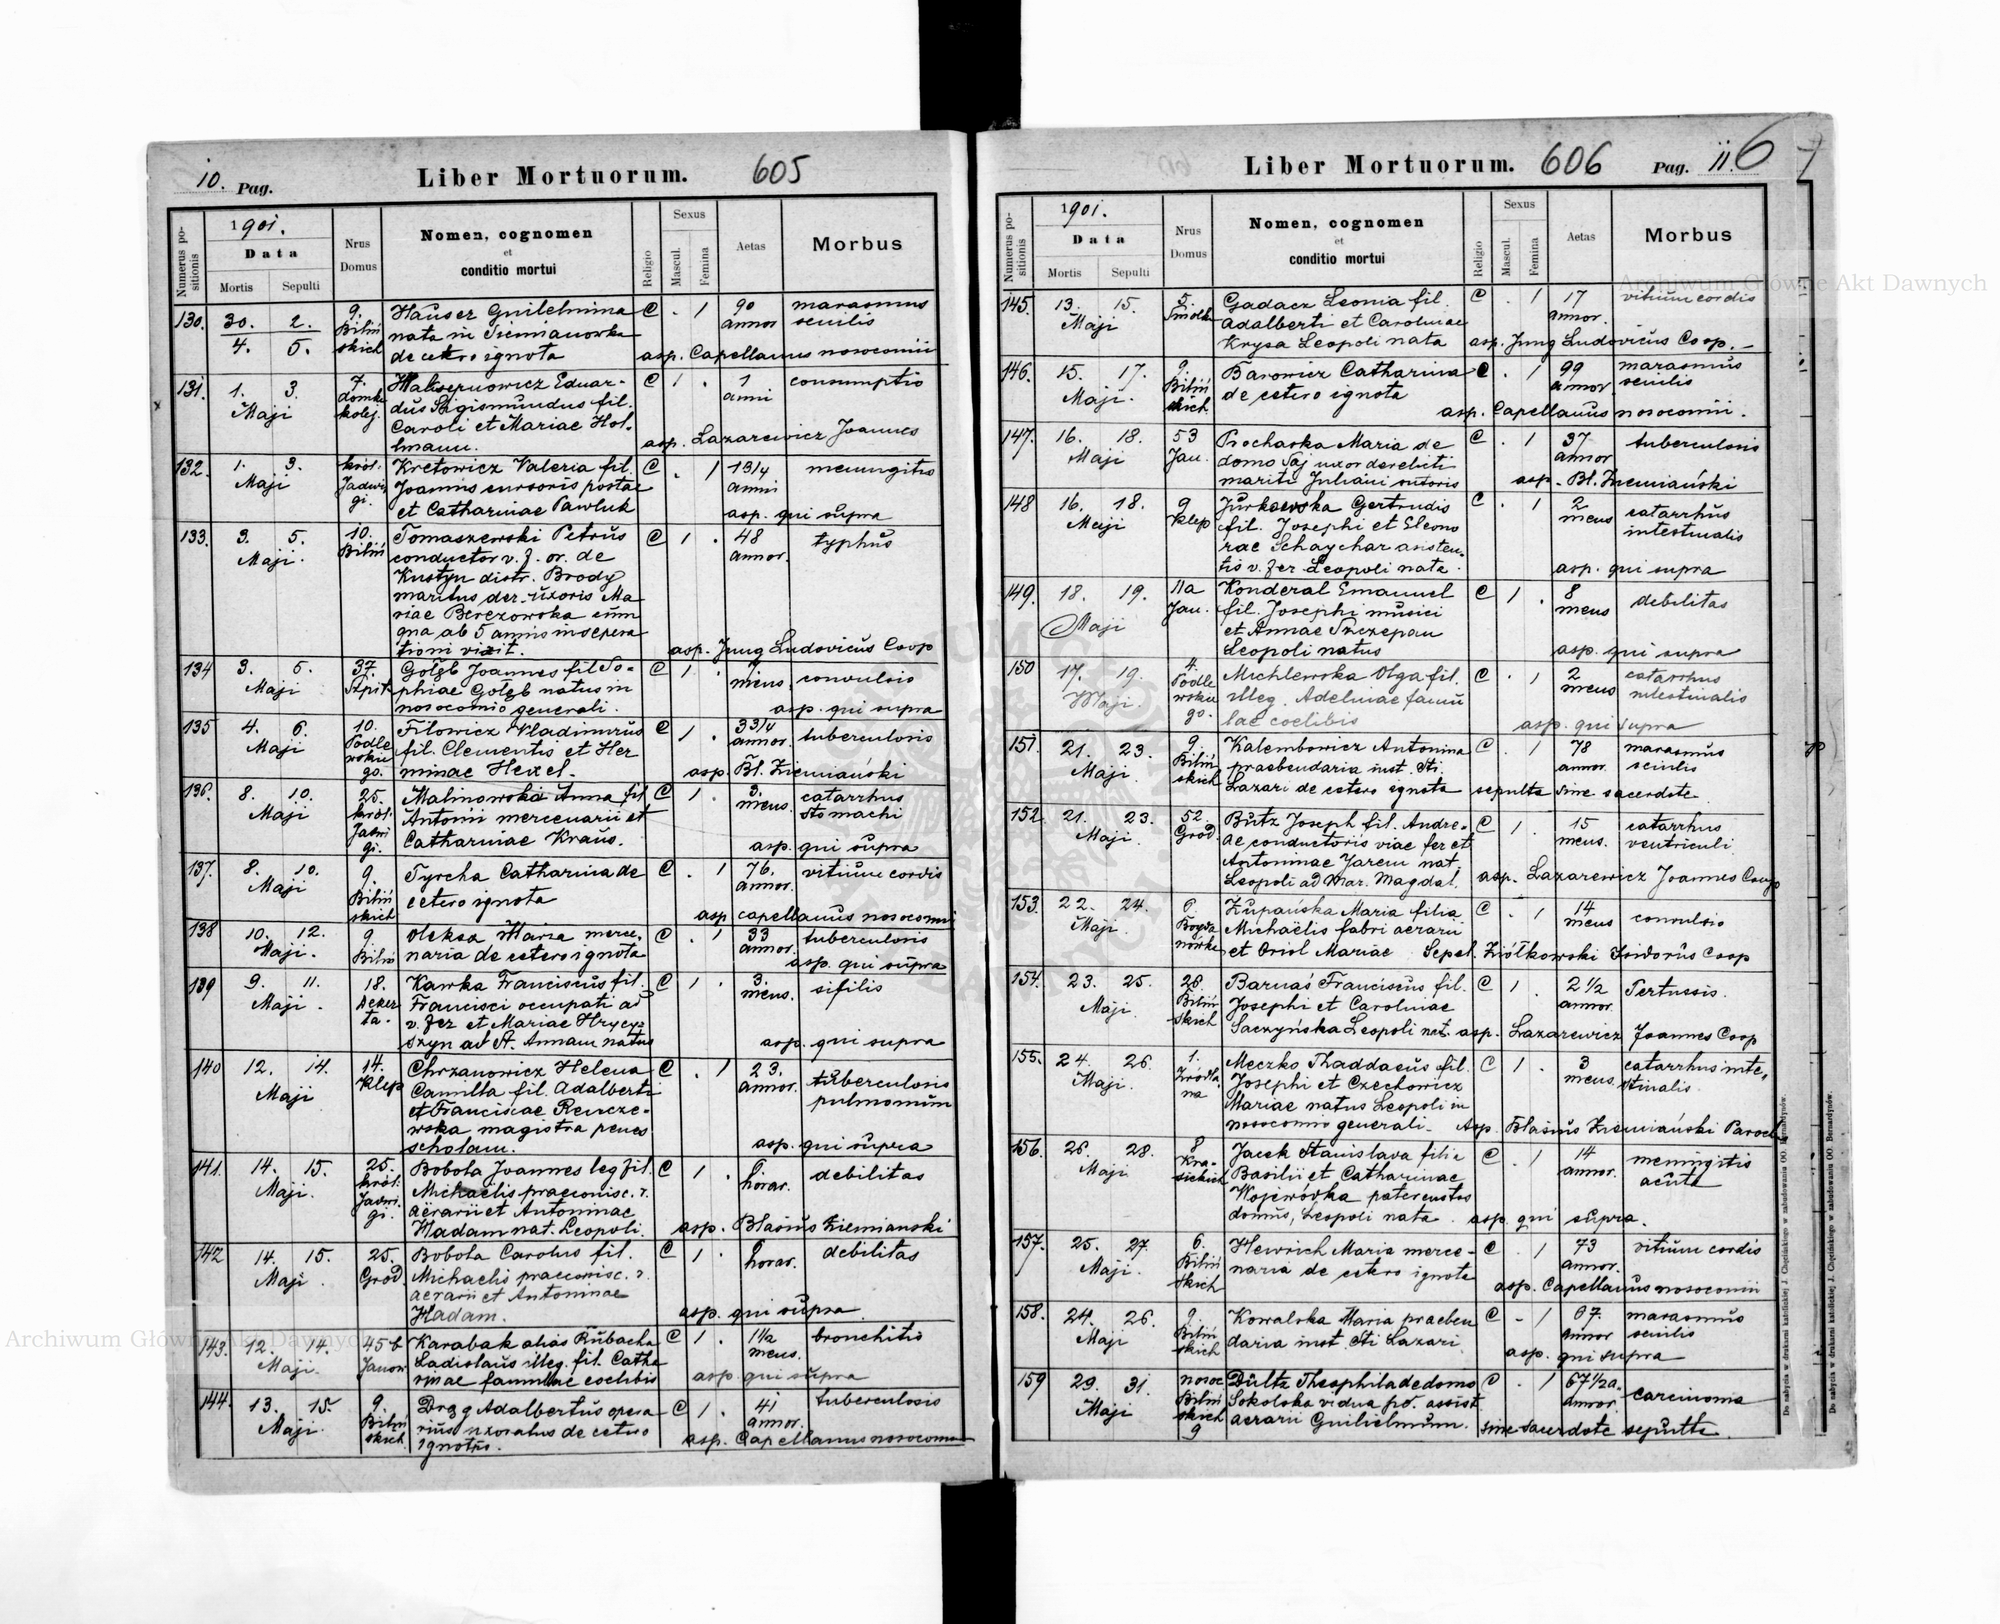 10. Pag. Liber Mortuorum. 605
Numerus positionis
1901.
Data
Mortis Sepulti
Nrus Domus
Nomen, cognomen
et
conditio mortui
Religio
Sexus
Mascul. Femina
Aetas
Morbus
130. 30. 2. 9. Hauser Guilelmina C . 1 90 marasmus
4. 5. Biliń nata in annor senilis
skich de cetero ignota asp. Capellanus nosocomii
131. 1. 3. 7. Eduar- C 1 . 1 consumptio
Maji domki dus Sigismundus fil. anni
kolej. Caroli et Mariae Hol-
lmann. asp. Lazarewicz Joannes
132. 1. 3. król. Kretowicz Valeria fil. C . 1 1 3/4 meningitis
Maji Jadwi Joannis cursoris postae anni
gi. et Catharinae Pawluk asp. qui supra
133. 3. 5. 10. Tomaszewski Petrus C 1 . 48 typhus
Maji. Biliń conductor v. f. or. de annor.
Kustyn distr. Brody
maritus der. uxoris Ma
riae Berezowska cum
qua ab 5 annis in sepera
tioni vixit. asp. Jung Ludovicus Coop
134 3. 5. 37. Gołąb Joannes fil So- C 1 . convulsio
Maji Szpit phiae Gołąb natus in mens.
nosocomio generali. asp. qui supra
135 4. 6. 10. Filowicz Vladimirus C 1 . 3 3/4 tuberculosis
Maji Podle fil. Clementis et Her annor.
wskie go. minae Hexel. asp. Bl. Ziemiański
136. 8. 10. 25. Malinowska Anna fil C 1 . 3. catarrhus
Maji król. Antonii mercenarii et mens. stomachi
Jadwi gi. Catharinae Kraus. asp. qui supra
137. 8. 10. 9 Tyrcha Catharina de C . 1 76. vitium cordis
Maji Biliń cetero ignota annor.
skich asp capellanus nosocomii
138 10. 12. 9 Oleksa Maria merce, C . 1 33 tuberculosis
Maji. Biliń naria de cetero ignota annor. asp. qui supra
139 9. 11. 18. Kawka Franciscus fil. C 1 . 3. sifilis
Maji. Dekerta. Francisci occupati ad mens.
v. fer et Mariae Hrycy-
szyn ad St. Annam natus asp. qui supra
140 12. 14. 14. Chrzanowicz Helena C . 1 23. tuberculosis
Maji Klep Camilla fil. Adalberti annor. pulmonum
et Franciscae Rencze-
wska magistra penes
scholam. asp. qui supra
141. 14. 15. 25. Bobola Joannes leg fil. C 1 . 6 debilitas
Maji. król. Michaelis praeconis c. r. horar.
Jadwi gi. aerarii et Antoninae
Hadam nat. Leopoli. asp. Blasius Ziemianski
142 14. 15. 25. Bobola Carolus fil. C 1 . 6 debilitas
Maji. Gród Michaelis praeconis c. r. horar.
aerarii et Antoninae
Hadam. asp. qui supra
143. 12. 14. 45 b Karabak alias Rubacha C 1 . 1 1/2 bronchitis
Maji. Janow Ladislaus illeg. fil. Catha mens.
rinae famulae coelibis asp. qui supra
144. 13. 15. 9. Drąg Adalbertus opera C 1 . 41 tuberculosis
Maji. Biliń rius uxoratus de cetero annor.
skich ignotus. asp. Capellanus nosocomii
Liber Mortuorum. 606 Pag. 11. 6
Numerus positionis
1901.
Data
Mortis Sepulti
Nrus Domus
Nomen, cognomen
et
conditio mortui
Religio
Sexus
Mascul. Femina
Aetas
Morbus
145. 13. 15. 5. Gadacz Leonia fil. C . 1 17 vitium cordis
Maji Smolki Adalberti et Carolinae annor.
Krysa Leopoli nata asp. Jung Ludovicus Coop.
146. 15. 17. 9. Barowicz Catharina C . 1 99 marasmus
Maji. Biliń skich de cetero ignota annor senilis
asp. Capellanus nosocomii.
147. 16. 18. 53 Prochaska Maria de C . 1 37 tuberculosis
Maji Jan. domo Saj uxor derelicti annor
mariti Juliani sutoris asp. Bl. Ziemiański
148 16. 18. 9 Jurkowska Gertrudis C . 1 2 catarrhus
Maji Klep fil. Josephi et Eleono mens intestinalis
rae Schaychar asisten-
tis v. fer Leopoli nata. asp. qui supra
149. 18. 19. 11a Konderal Emanuel C 1 . 8 debilitas
Maji Jan. fil. Josephi musici mens
et Annae Szczepan
Leopoli natus asp. qui supra
150 17. 19. 4. Michlewska Olga fil. C . 1 2 catarrhus
Maji. Podle illeg. Adelinae famu mens intestinalis
wskie go. lae coelibis asp. qui supra
151. 21. 23. 9. Kalembowicz Antonina C . 1 78 marasmus
Maji. Biliń praebendaria inst. Sti annor. senilis
skich Lazari de cetero ignota sepulta sine sacerdote.
152. 21. 23. 52. Butz Joseph fil. Andre- C 1 . 15 catarrhus
Maji. Gród. ae conductoris viae fer et mens. ventriculi
Antoninae Jarem nat.
Leopoli ad Mar. Magdal. asp. Lazarewicz Joannes Coop
153. 22. 24. 6. Zupańska Maria filia C . 1 14 convulsio
Maji. Bogda Michaëlis fabri aerarii mens
nówka et Oriol Mariae Sepel. Ziółkowski Isidorus Coop
154. 23. 25. 26. Barnaś Franciscus fil. C 1 . 2 1/2 Pertussis.
Maji. Biliń Josephi et Carolinae annor.
skich Saczyńska Leopoli nat. asp. Lazarewicz Joannes Coop
155. 24. 26. 1. Meczko Thaddaeus fil. C 1 . 3 catarrhus inte,
Maji. Źródla Josephi et Czechowicz mens. stinalis.
na Mariae natus Leopoli in
nosocomio generali. Asp. Blasius Ziemiański Paroch
156. 26. 28. 8 Jacek Stanislava filia C . 1 14 meningitis
Maji Kra- Basilii et Catharinae annor. acuta
sickich Wojewódka patercustos
domus, Leopoli nata. asp. qui supra.
157. 25. 27. 6. Hewrich Maria merce- C . 1 73 vitium cordis
Maji. Biliń naria de cetero ignota annor.
skich asp. Capellanus nosocomii
158. 24. 26. 9. Kowalska Maria praeben C . 1 67. marasmus
Maji Biliń daria inst Sti Lazari. annor senilis
skich asp. qui supra
159 29. 31. nosoc Dultz Theophila de domo C . 1 67 1/2 a. carcinoma
Maji Biliń Sokolska vidua po. assist. annor.
skich 9 aerarii Guilielmum. sine sacerdote sepulta.
Do nabycia w drukarni katolickiej J. Chęcińskiego w zabudowaniu OO. Bernardynów.
Do nabycia w drukarni katolickiej J. Chęcińskiego w zabudowaniu OO. Bernardynów.
Archiwum Główne Akt Dawnych
Archiwum Główne Akt Dawnych